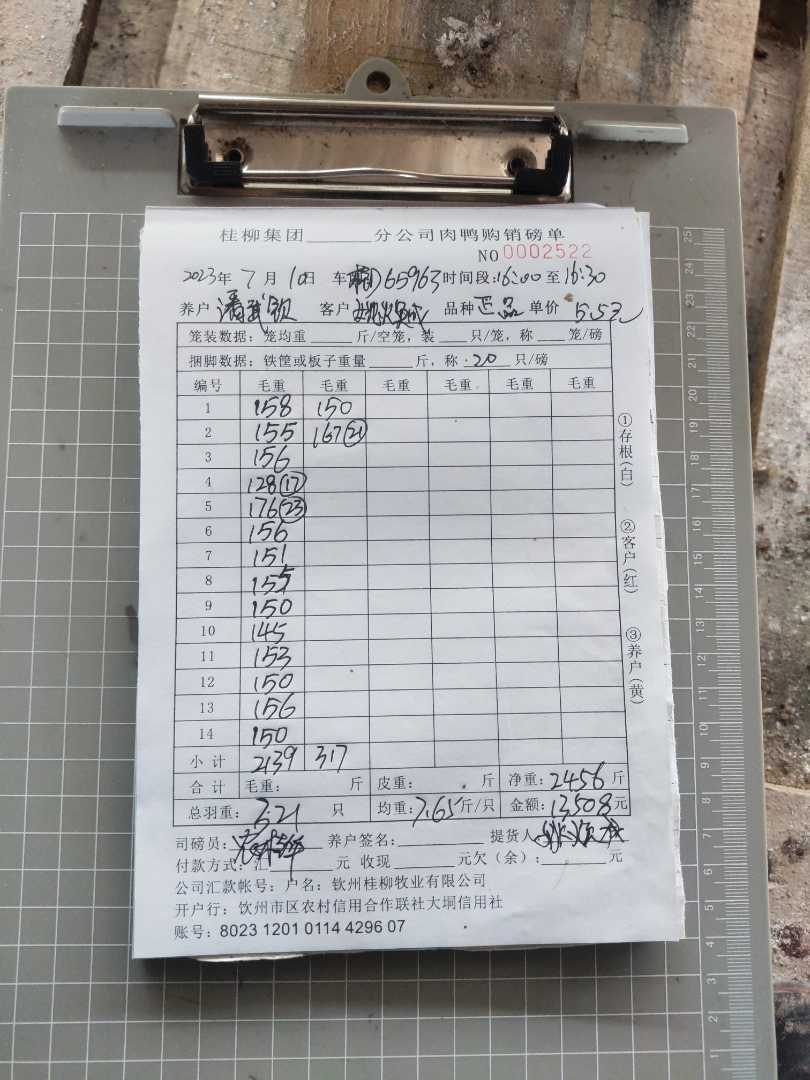 桂柳集团______分公司肉鸭购销磅单
NO 0002522
2023年 7月 10日 车 65963 时间段:16:00至16:30
养户 潘武钦 客户 品种 正品 单价 5.5元
笼装数据: 笼均重____斤/空笼, 装____只/笼, 称____笼/磅
捆脚数据: 铁筐或板子重量____斤, 称 20 只/磅
编号 毛重 毛重 毛重 毛重 毛重 毛重
1 158 150
2 155 167(21)
3 156
4 128(17)
5 176(23)
6 156
7 151
8 155
9 150
10 145
11 153
12 150
13 156
14 150
小计 2139 317
合计 毛重: 斤 皮重: 斤 净重: 2456 斤
总羽重: 321 只 均重: 7.65斤/只 金额: 13508元
司磅员: 养户签名:______ 提货人
付款方式: 汇______元 收现______元欠(余):______元
公司汇款帐号: 户名: 钦州桂柳牧业有限公司
开户行: 钦州市区农村信用合作联社大垌信用社
账号: 8023 1201 0114 4296 07
①存根(白)
②客户(红)
③养户(黄)
25
24
23
22
21
20
19
18
17
16
15
14
13
12
11
10
9
8
7
6
5
4
3
2
1